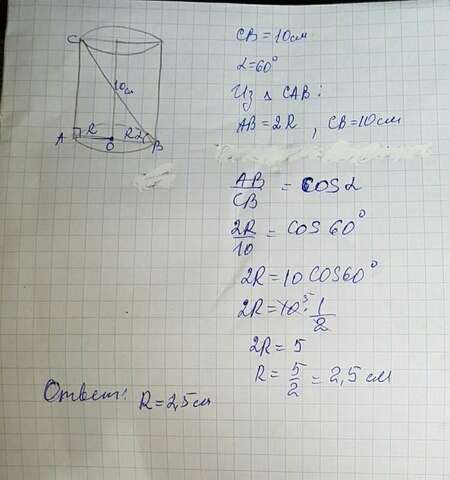 C
10см
A R O R α B
CB = 10см
α=60°
Из △ CAB:
AB=2R , CB=10см
AB/CB = cos α
2R/10 = cos 60°
2R = 10 cos60°
2R = 10 5 · 1/2
2R = 5
R = 5/2 = 2,5 см
Ответ: R = 2,5 см